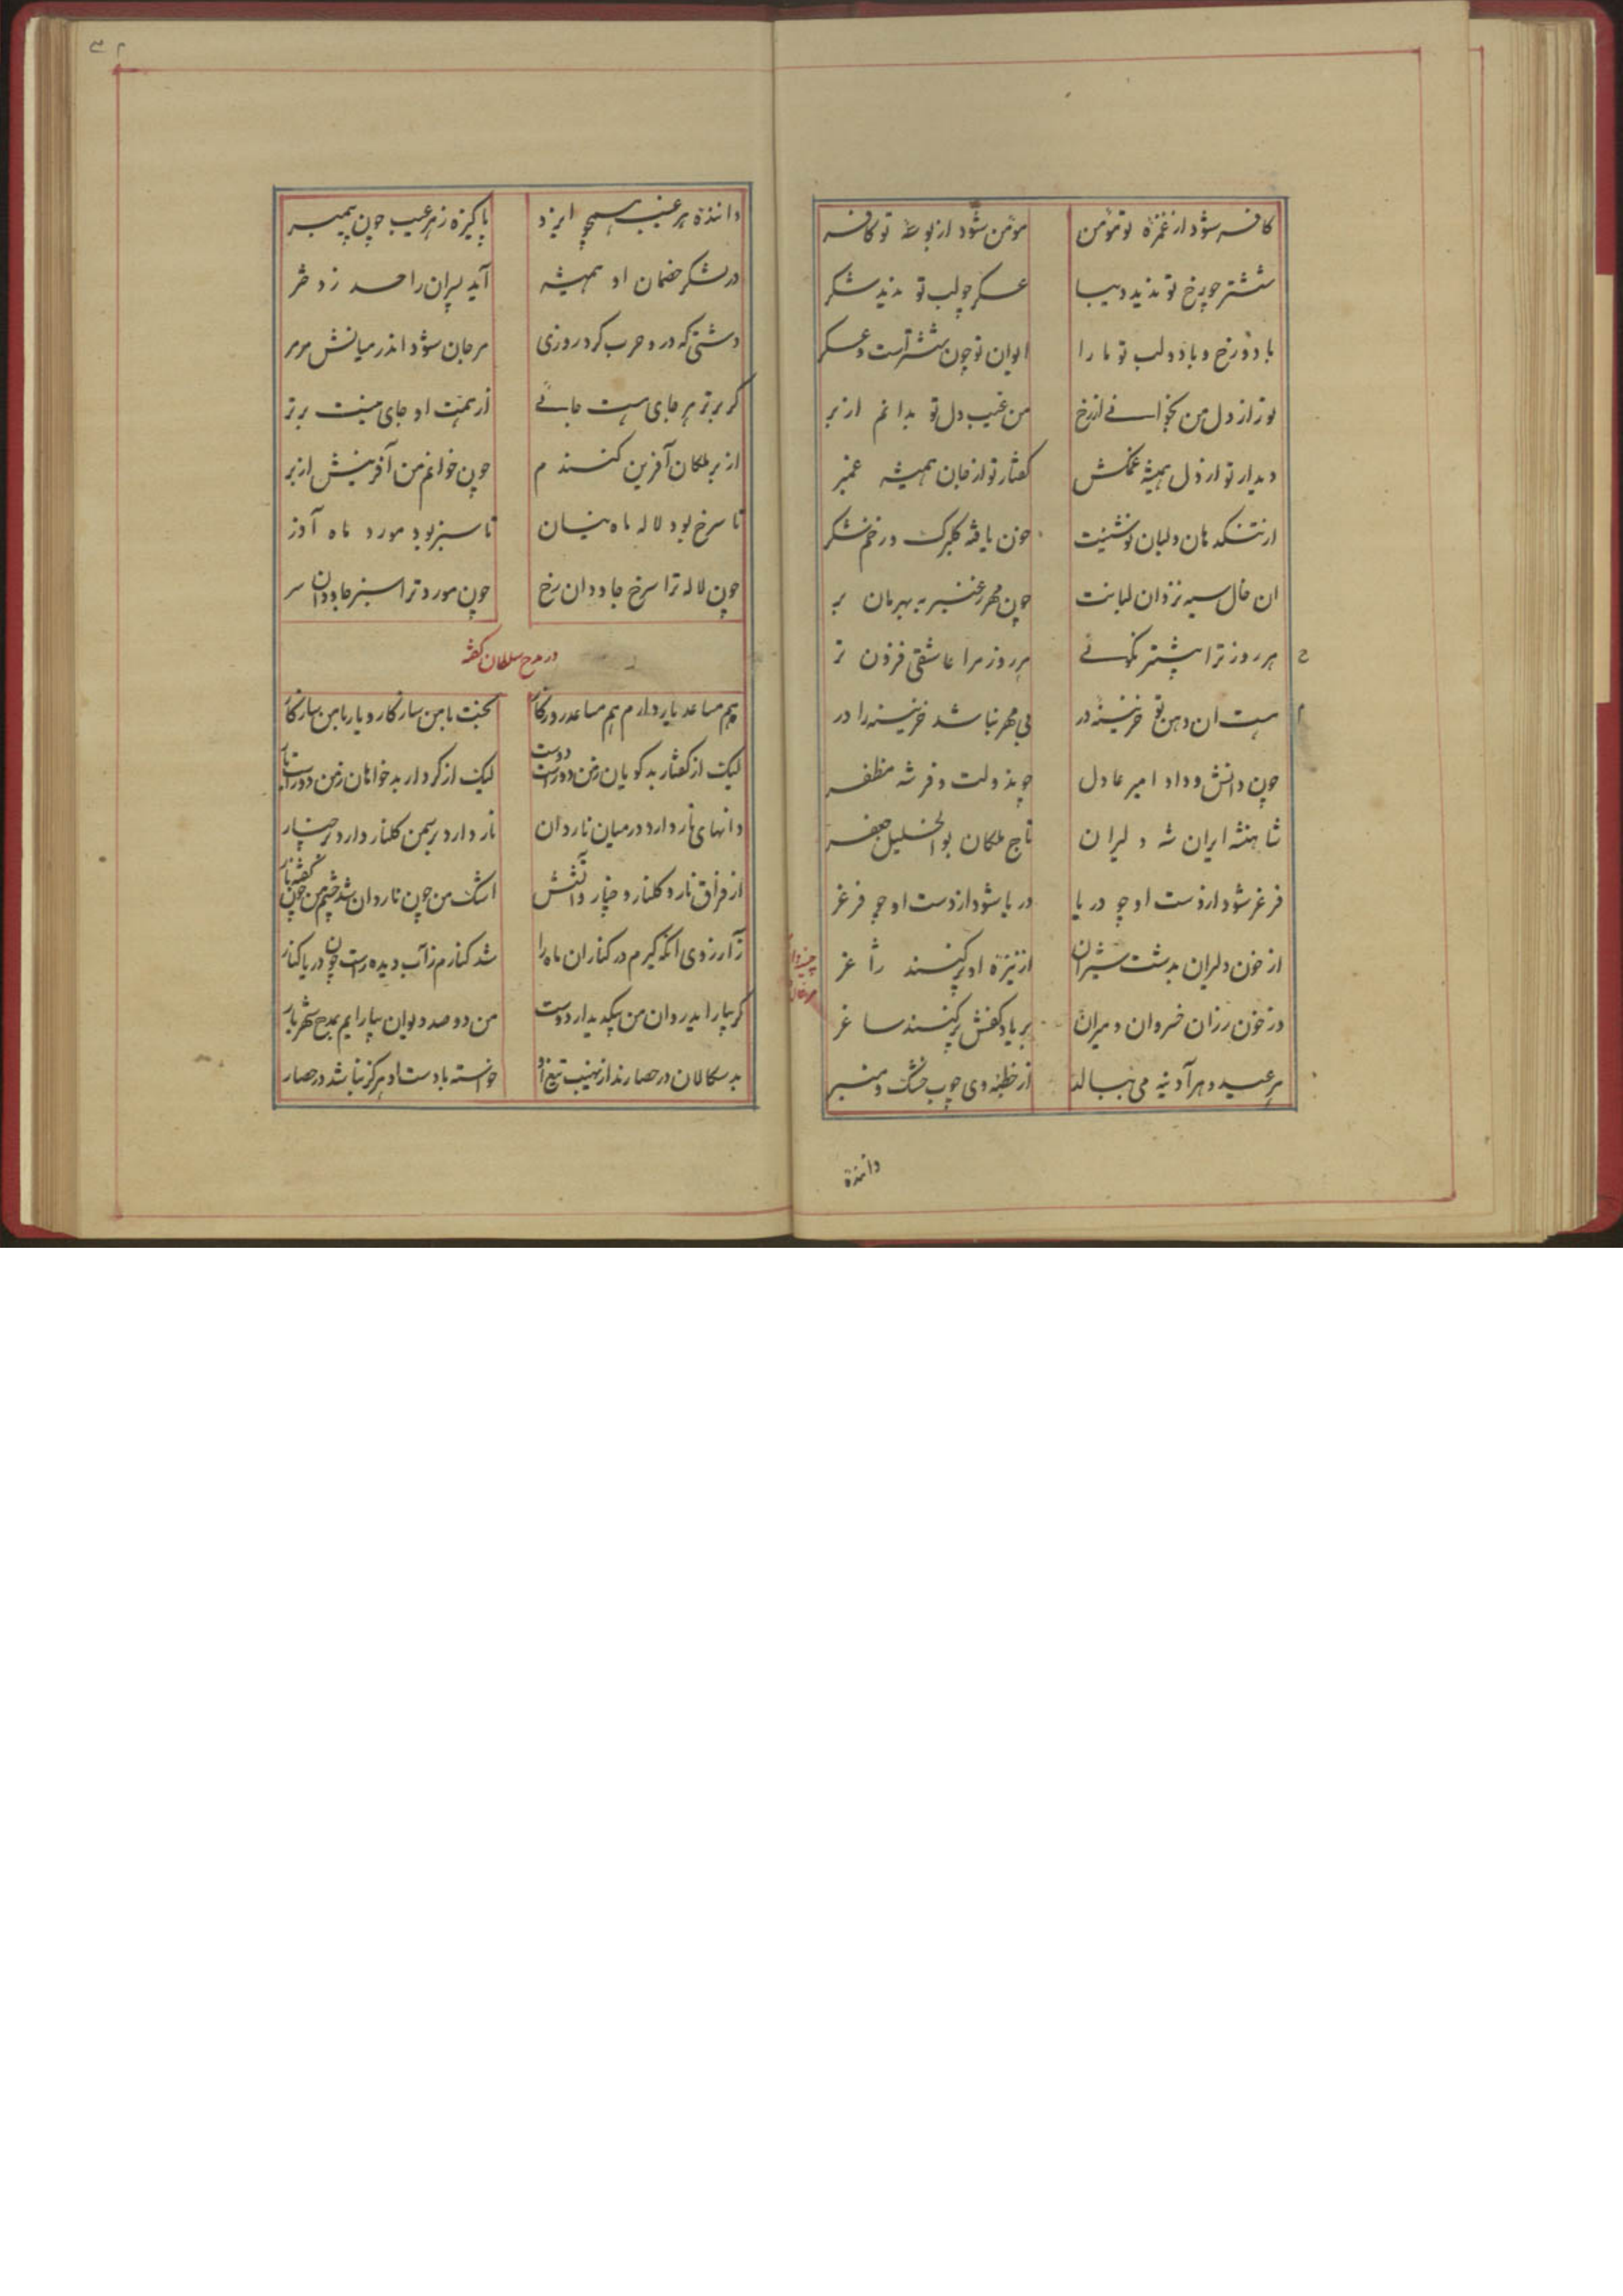 کافر شود از غمزهٔ تو مؤمن مؤمن شود از بوسهٔ تو کافر
ششتر چو رخ تو ندید دیبا عسکر چو لب تو ندید شکر
با دو رخ و با دو لب تو ما را ایوان تو چون ششتر است و عسکر
تو راز دل من بخوانی از رخ من غیب دل تو بدانم از بر
دیدار تو از دل همیشه غمکش گفتار تو از جان همیشه غمبر
از تنگ دهان و لبان نوشینت چون یافته گلبرگ در خم شکر
ان خال سیه نزد ان لبانت چون مهر ز عنبر به بهرمان بر
هر روز ترا بیشتر نکوئی هر روز مرا عاشقی فزون تر
هست ان دهن تو خزینه در بی مهر نباشد خزینه را در
چون دانش و داد امیر عادل چونذ ولت و فر شه مظفر
شاهنشه ایران شه دلیران تاج ملکان بو الخلیل جعفر
فرغر شود از دست او چو دریا دریا شود از دست او چو فرغر
از خون دلیران بدشت شیران از نیزه او پر کنند ژاغر
در خون رزان خسروان و میران بر یاد کفش پر کنند ساغر
هر عید و هر آدینه می ببالد از خطبه وی چوب خشک و منبر
دانندهٔ
دانندهٔ هر غیب همچو ایزد پاکیزه ز هر عیب چون پیمبر
در لشکر خصمان او همیشه آید پسران را حسد ز دختر
دشتی که در و حرب کرد روزی مرجان شود اندر میانش مرمر
گر برتر هر جای هست جائی از همت او جای نیست برتر
از بر ملکان آفرین کنندم چون خوانم من آفرینش از بر
تا سرخ بود لاله ماه نیسان تا سبز بود مورد ماه آذر
چون لاله ترا سرخ جاودان رخ چون مورد ترا سبز جاودان سر
در مدح سلطان گفته
هم مساعد یار دارم هم مساعد روزگار بخت با من سازگار و یار با من سازگار
لیک از گفتار بد گویان ز من دورست دوست لیک از کردار بد خواهان ز من دورست یار
دانهای نار دارد در میان ناردان نار دارد بر سمن گلنار دارد بر چنار
از فراق نار و گلنار و چنار و آتشش اشک من چون ناردان شد چشم من چون گفته نار
ز آرزوی انکه گیرم در کنار ان ماه را شد کنارم ز آب دیده راست چون دریا کنار
گر بیاراید روان من بیک دیدار دوست من دو صد دیوان بیارایم بمدح شهریار
بد سکالان در حصارند از نهیب تیغ او خواسته با دست او هرگز نباشد در حصار